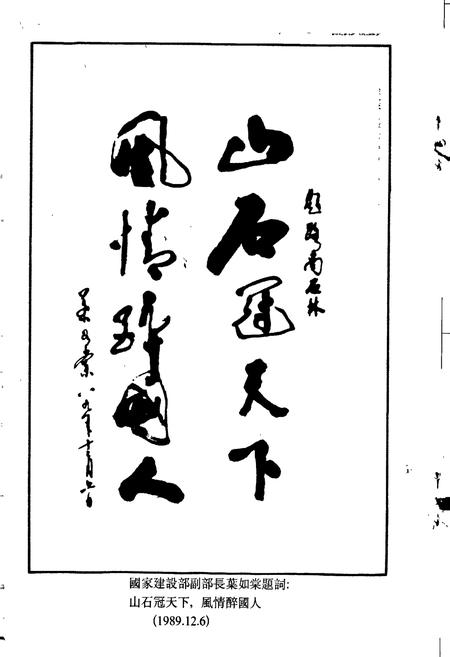 題路南石林
山石冠天下
風情醉國人
葉如棠 八九年十二月六日
國家建設部副部長葉如棠題詞：
山石冠天下，風情醉國人
(1989.12.6)